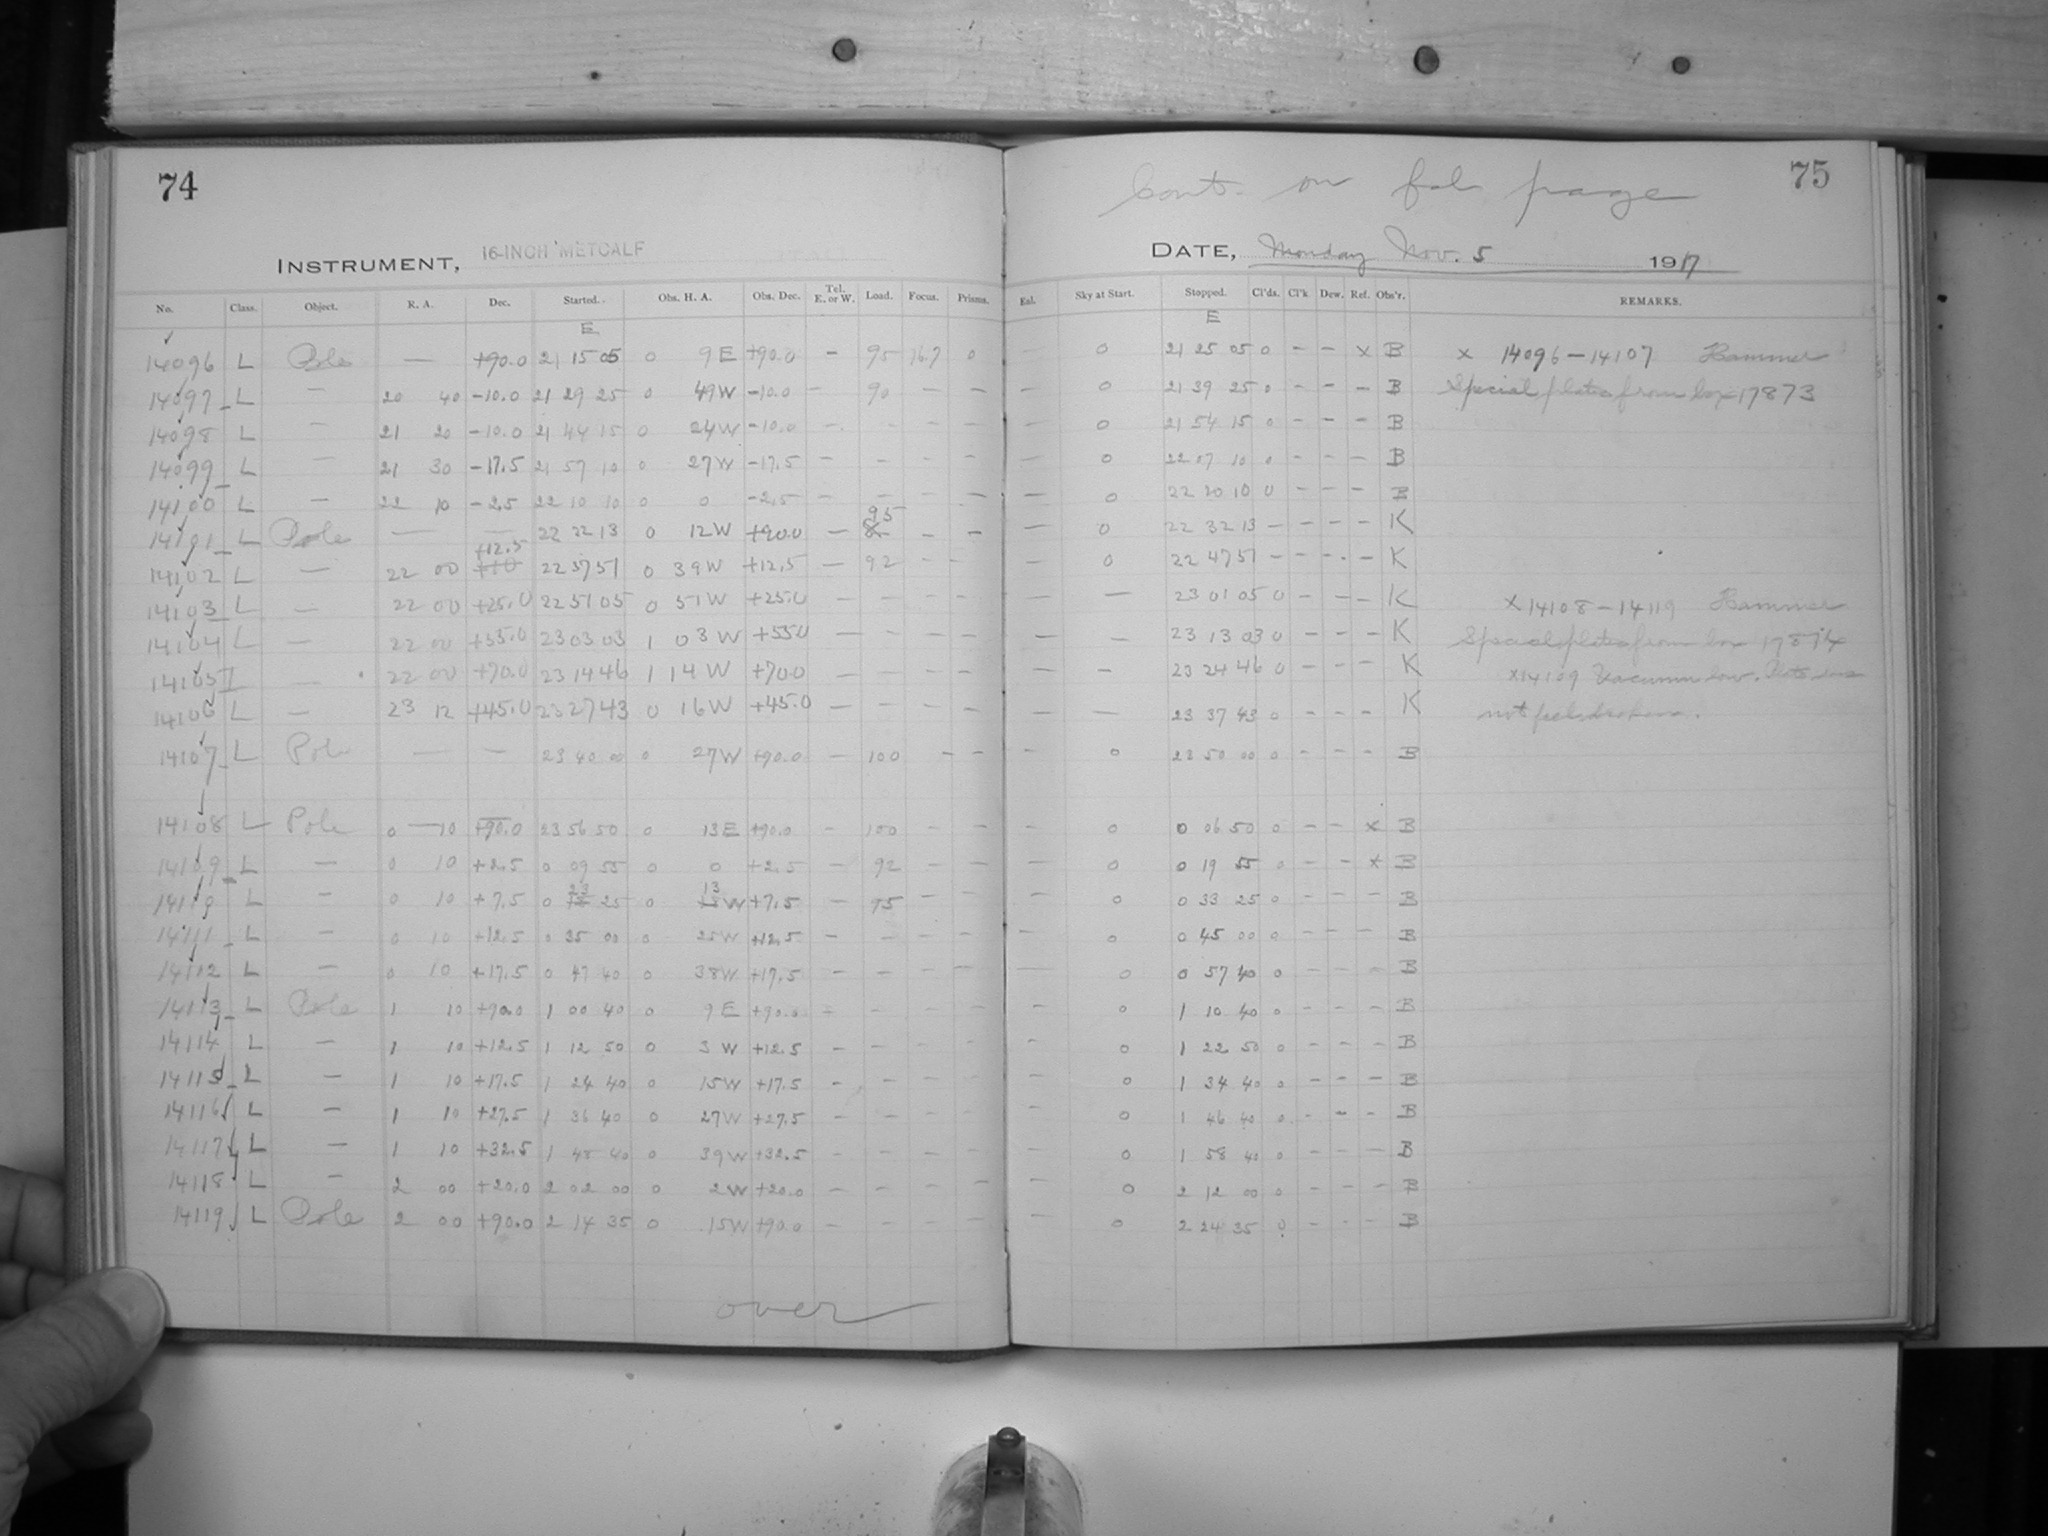 74
INSTRUMENT, 16-INCH METCALF
No. Class. Object. R. A. Dec. Started. Obs. H. A. Obs. Dec. Tel. E. or W. Load. Focus. Prisms.
E
14096 L Pole — +90.0 21 15 05 0 9 E +90.0 - 95 16.7 0
14097 L — 20 40 -10.0 21 29 25 0 49 W -10.0 - 90 - -
14098 L — 21 20 -10.0 21 44 15 0 24 W -10.0 - - - -
14099 L — 21 30 -17.5 21 57 10 0 27 W -17.5 - - - -
14100 L — 22 10 -2.5 22 10 10 0 0 -2.5 - - - -
95
14101 L Pole — — 22 22 13 0 12 W +90.0 - - -
+12.5
14102 L — 22 00 +10 22 37 51 0 39 W +12.5 - 92 - -
14103 L — 22 00 +25.0 22 51 05 0 51 W +25.0 - - - -
14104 L — 22 00 +55.0 23 03 03 1 03 W +55.0 - - - -
14105 L — 22 00 +70.0 23 14 46 1 14 W +70.0 - - - -
14106 L — 23 12 +45.0 23 27 43 0 16 W +45.0 - - - -
14107 L Pole — — 23 40 00 0 27 W +90.0 - 100 - -
14108 L Pole 0 — 10 +90.0 23 56 50 0 13 E +90.0 - 100 - -
14109 L — 0 10 +2.5 0 09 55 0 0 +2.5 - 92 - -
23 13
L — 0 10 +7.5 0 25 0 W +7.5 - 95 - -
14111 L — 0 10 +12.5 0 35 00 0 25 W +12.5 - - - -
14112 L — 0 10 +17.5 0 47 40 0 38 W +17.5 - - - -
14113 L Pole 1 10 +90.0 1 00 40 0 9 E +90.0 - - - -
14114 L — 1 10 +12.5 1 12 50 0 3 W +12.5 - - - -
14115 L — 1 10 +17.5 1 24 40 0 15 W +17.5 - - - -
14116 L — 1 10 +27.5 1 36 40 0 27 W +27.5 - - - -
14117 L — 1 10 +32.5 1 48 40 0 39 W +32.5 - - - -
14118 L — 2 00 +20.0 2 02 00 0 2 W +20.0 - - - -
14119 L Pole 2 00 +90.0 2 14 35 0 15 W +90.0 - - - -
over
75
Cont. on fol page
DATE, Monday Nov. 5 1917
Exl. Sky at Start. Stopped. Cl'ds. Cl'k Dew. Ref. Obs'r. REMARKS.
E
— 0 21 25 05 0 - - x B x 14096-14107 Hammer
— 0 21 39 25 0 - - - B Special plates from box 17873
— 0 21 54 15 0 - - - B
— 0 22 07 10 0 - - - B
— 0 22 20 10 0 - - - B
— 0 22 32 13 - - - - K
— 0 22 47 51 - - - - K
— — 23 01 05 0 - - - K x 14108-14119 Hammer
— — 23 13 03 0 - - - K Special plates from box 17874
— — 23 24 46 0 - - - K x14109 Vacuum low. Plate was
— — 23 37 43 0 - - - K not
— 0 23 50 00 0 - - - B
— 0 0 06 50 0 - - x B
— 0 0 19 55 0 - - x B
— 0 0 33 25 0 - - - B
— 0 0 45 00 0 - - - B
— 0 0 57 40 0 - - - B
— 0 1 10 40 0 - - - B
— 0 1 22 50 0 - - - B
— 0 1 34 40 0 - - - B
— 0 1 46 40 0 - - - B
— 0 1 58 40 0 - - - B
— 0 2 12 00 0 - - - B
— 0 2 24 35 0 - - - B